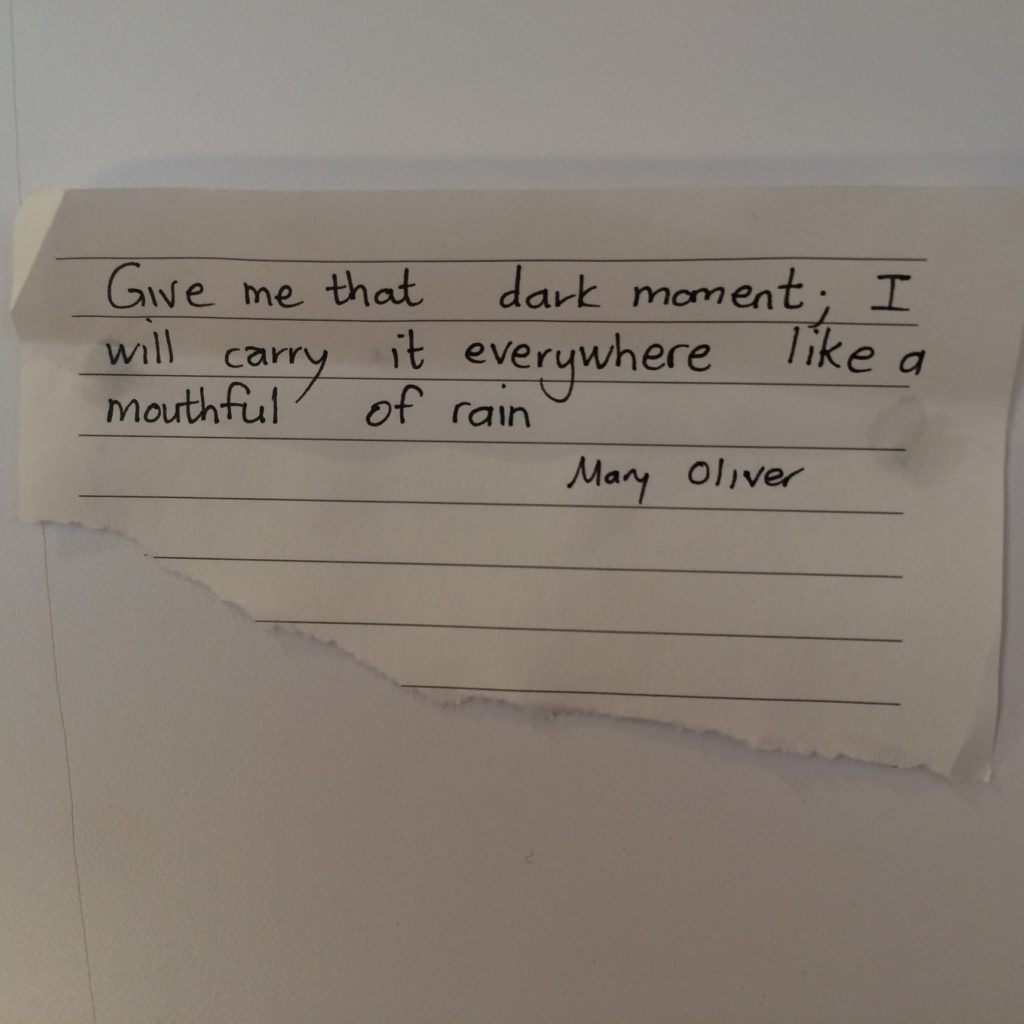 Give me that dark moment; I
will carry it everywhere like a
mouthful of rain
Mary Oliver